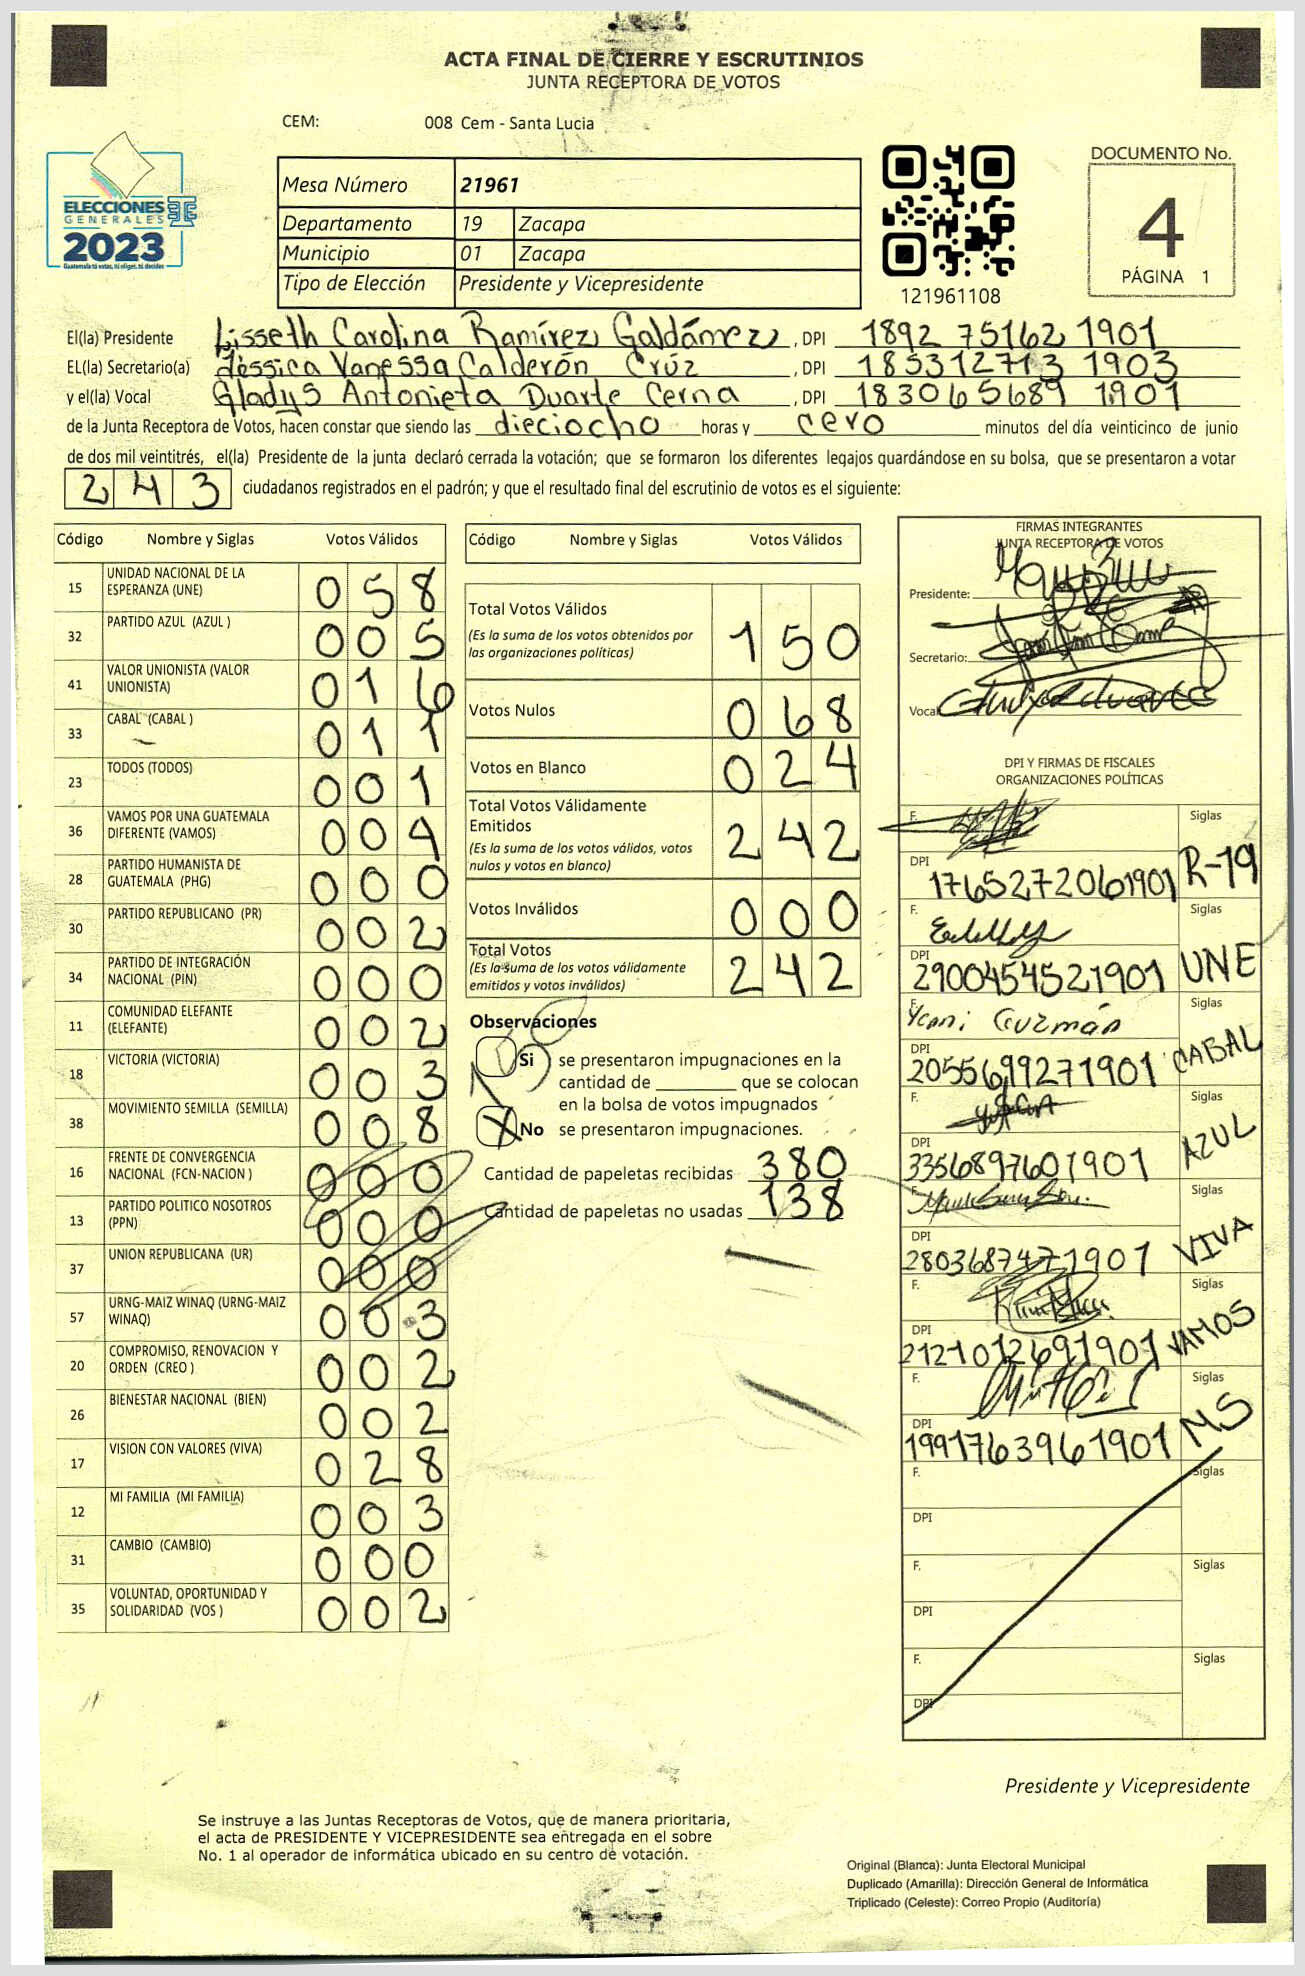 ACTA FINAL DE CIERRE Y ESCRUTINIOS
JUNTA RECEPTORA DE VOTOS
CEM: 008 Cem - Santa Lucia
ELECCIONES
GENERALES
2023
Guatemala tú votas, tú eliges, tú decides
Mesa Número 21961
Departamento 19 Zacapa
Municipio 01 Zacapa
Tipo de Elección Presidente y Vicepresidente
121961108
DOCUMENTO No.
4
PÁGINA 1
El(la) Presidente Lisseth Carolina Ramírez Galdámez, DPI 1892 75162 1901
EL(la) Secretario(a) Jéssica Vanessa Calderón Crúz, DPI 185312713 1903
y el(la) Vocal Gladys Antonieta Duarte Cerna, DPI 183065689 1901
de la Junta Receptora de Votos, hacen constar que siendo las dieciocho horas y cero minutos del día veinticinco de junio
de dos mil veintitrés, el(la) Presidente de la junta declaró cerrada la votación; que se formaron los diferentes legajos quardándose en su bolsa, que se presentaron a votar
243 ciudadanos registrados en el padrón; y que el resultado final del escrutinio de votos es el siguiente:
Código Nombre y Siglas Votos Válidos
15 UNIDAD NACIONAL DE LA ESPERANZA (UNE) 058
32 PARTIDO AZUL (AZUL ) 005
41 VALOR UNIONISTA (VALOR UNIONISTA) 016
33 CABAL (CABAL ) 011
23 TODOS (TODOS) 001
36 VAMOS POR UNA GUATEMALA DIFERENTE (VAMOS) 004
28 PARTIDO HUMANISTA DE GUATEMALA (PHG) 000
30 PARTIDO REPUBLICANO (PR) 002
34 PARTIDO DE INTEGRACIÓN NACIONAL (PIN) 000
11 COMUNIDAD ELEFANTE (ELEFANTE) 002
18 VICTORIA (VICTORIA) 003
38 MOVIMIENTO SEMILLA (SEMILLA) 008
16 FRENTE DE CONVERGENCIA NACIONAL (FCN-NACION ) 000
13 PARTIDO POLITICO NOSOTROS (PPN) 000
37 UNION REPUBLICANA (UR) 000
57 URNG-MAIZ WINAQ (URNG-MAIZ WINAQ) 003
20 COMPROMISO, RENOVACION Y ORDEN (CREO ) 002
26 BIENESTAR NACIONAL (BIEN) 002
17 VISION CON VALORES (VIVA) 028
12 MI FAMILIA (MI FAMILIA) 003
31 CAMBIO (CAMBIO) 000
35 VOLUNTAD, OPORTUNIDAD Y SOLIDARIDAD (VOS ) 002
Código Nombre y Siglas Votos Válidos
Total Votos Válidos 150
(Es la suma de los votos obtenidos por las organizaciones políticas)
Votos Nulos 068
Votos en Blanco 024
Total Votos Válidamente Emitidos 242
(Es la suma de los votos válidos, votos nulos y votos en blanco)
Votos Inválidos 000
Total Votos 242
(Es la suma de los votos válidamente emitidos y votos inválidos)
Observaciones
150
Si se presentaron impugnaciones en la
cantidad de ________ que se colocan
en la bolsa de votos impugnados
X No se presentaron impugnaciones.
Cantidad de papeletas recibidas 380
Cantidad de papeletas no usadas 138
FIRMAS INTEGRANTES
JUNTA RECEPTORA DE VOTOS
Presidente:
Secretario:
Vocal
DPI Y FIRMAS DE FISCALES
ORGANIZACIONES POLÍTICAS
F. Siglas
DPI 1765272061901 R-19
F. Siglas
DPI 2900454521901 UNE
F. Yenni Guzmán Siglas
DPI 2055699271901 CABAL
F. Siglas
DPI 3356897601901 AZUL
F. Siglas
DPI 2803687471901 VIVA
F. Siglas
DPI 2121012691901 VAMOS
F. Siglas
DPI 1991763961901 MS
F. Siglas
DPI
F. Siglas
DPI
F. Siglas
DPI
Presidente y Vicepresidente
Se instruye a las Juntas Receptoras de Votos, que de manera prioritaria,
el acta de PRESIDENTE Y VICEPRESIDENTE sea entregada en el sobre
No. 1 al operador de informática ubicado en su centro de votación.
Original (Blanca): Junta Electoral Municipal
Duplicado (Amarilla): Dirección General de Informática
Triplicado (Celeste): Correo Propio (Auditoría)